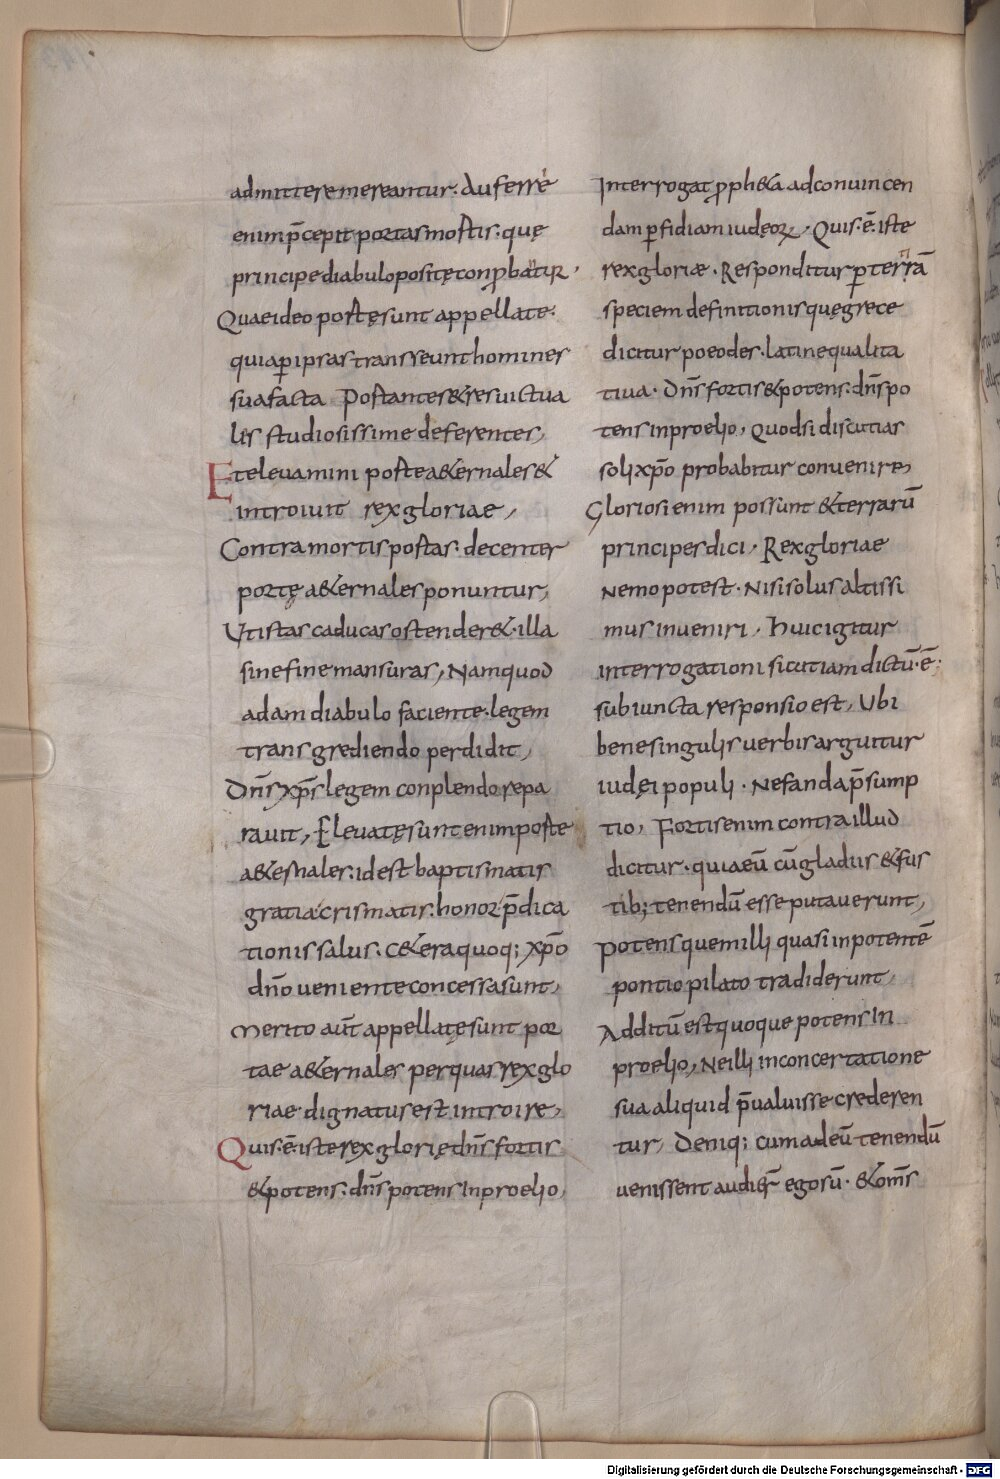 admittere mereantur. Auferrė
enim p̄cepit portas mortis: quę
principe diabulo positę conp̱batur.
Quae ideo portę sunt appellate.
quia ꝑ ipsas transseunt homines
sua facta Portantes & res uictua
lis studiosissime deferentes,
Et eleuamini porte a&ernales &
introiuit rex gloriae,
Contra mortis portas. decenter
portę a&ernales ponuntur,
Ut istas caducas ostender&. illa
sine fine mansuras, Nam quod
adam diabulo faciente. legem
transgrediendo perdidit,
Dn̄s xp̄s legem conplendo repa
rauit, Eleuatę sunt enim porte
a&ernales: id est baptismatis
gratia crismatis. honor p̄dica
tionis salus. C&era quoq; xp̄o
dn̄o ueniente concessa sunt,
Merito aūt appellatę sunt por
tae a&ernales per quas rex glo
riae dignatus est introire,
Quis. ē. iste rex glorię dn̄s fortis
& potens: dn̄s potens in proelio,
Interrogat ꝓph&a ad conuincen
dam ꝑfidiam iudęoꝝ, Quis. ē. iste
rex gloriæ. Responditur ꝑ terrā
speciem definitionis quę grece
dicitur poeodes. latine qualita
tiua. Dn̄s fortis & potens: dn̄s po
tens in proelio, Quod si discutias
soli xp̄o probabitur conuenire,
Gloriosi enim possunt & terrarū
principes dici, Rex gloriae
nemo potest. Nisi solus altissi
mus inueniri, Huic igitur
interrogationi sicut iam dictū. ē.
subiuncta responsio est, Ubi
bene singulis uerbis arguitur
iudęi populi. Nefanda p̄sump
tio, Fortis enim contra illud
dicitur. quia eū cū gladiis & fus
tib; tenendū esse putauerunt,
Potens quem illi quasi inpotentē
pontio pilato tradiderunt,
Additū est quoque potens in
proelio, Ne illi in concertatione
sua aliquid p̄ualuisse crederen
tur, Deniq; cum ad eū tenendū
uenissent audier̄ ego sū. & om̄s